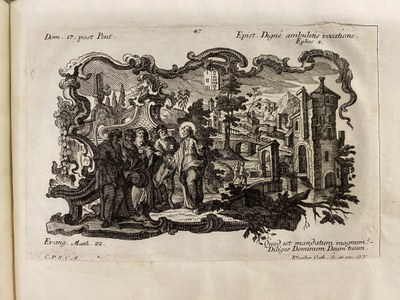 47
Dom. 17. post Pent.
Epist. Digne ambuletis vocatione.
Ephes 4.
Evang. Matth. 22.
Quod est mandatum magnum?
Diliges Dominum Deum tuum.
C. P. S. C. M.
Klauber Cath. sc. et exc. A.V.